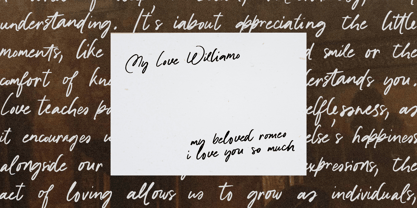 understanding. It's iabout appreciating the little
moments, like
smile or the
comfort of
understands you.
Love teaches
selflessness, as
it encourages
else's happiness
alongside our
expressions, the
act of loving allows us to grow as individuals.
My Love Williamo
my beloved romeo
i love you so much